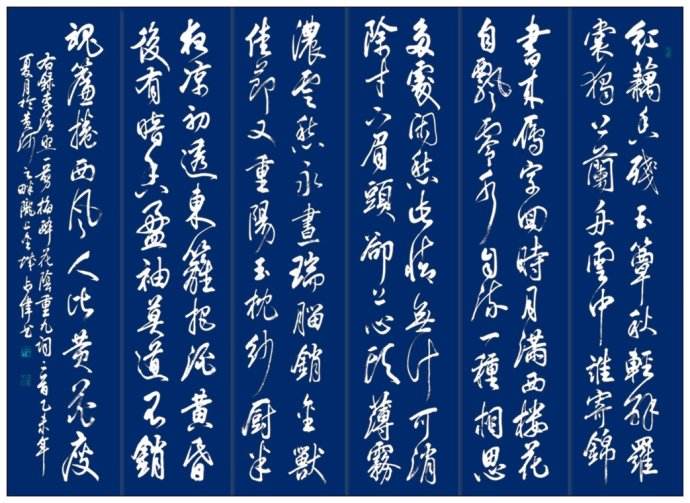 紅藕香殘玉簟秋輕解羅
裳獨上蘭舟雲中誰寄錦
書來雁字回時月滿西樓花
自飄零水自流一種相思
兩處閑愁此情無計可消
除才下眉頭卻上心頭薄霧
濃雲愁永晝瑞腦銷金獸
佳節又重陽玉枕紗厨半
夜凉初透東籬把酒黄昏
後有暗香盈袖莫道不銷
魂簾捲西風人比黄花瘦
右録李清照一剪梅醉花陰重九詞二首乙未年
夏月於黄河之畔隴上金城